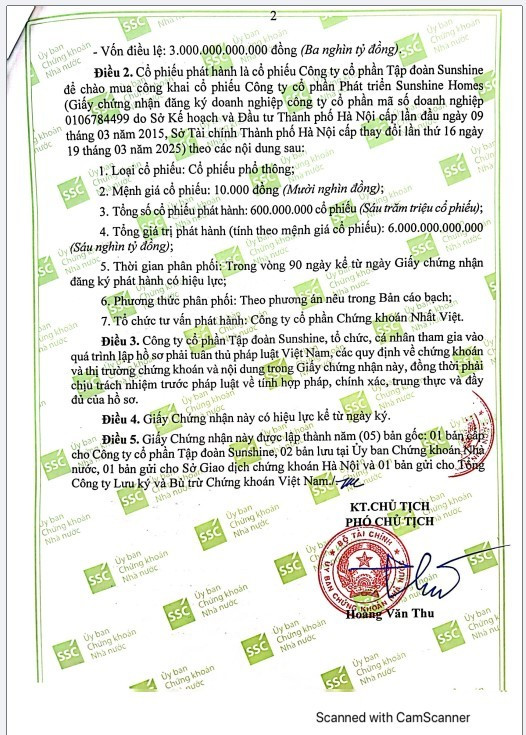 2
- Vốn điều lệ: 3.000.000.000.000 đồng (Ba nghìn tỷ đồng).
Điều 2. Cổ phiếu phát hành là cổ phiếu Công ty cổ phần Tập đoàn Sunshine
để chào mua công khai cổ phiếu Công ty cổ phần Phát triển Sunshine Homes
(Giấy chứng nhận đăng ký doanh nghiệp công ty cổ phần mã số doanh nghiệp
0106784499 do Sở Kế hoạch và Đầu tư Thành phố Hà Nội cấp lần đầu ngày 09
tháng 03 năm 2015, Sở Tài chính Thành phố Hà Nội cấp thay đổi lần thứ 16 ngày
19 tháng 03 năm 2025) theo các nội dung sau:
1. Loại cổ phiếu: Cổ phiếu phổ thông;
2. Mệnh giá cổ phiếu: 10.000 đồng (Mười nghìn đồng);
3. Tổng số cổ phiếu phát hành: 600.000.000 cổ phiếu (Sáu trăm triệu cổ phiếu);
4. Tổng giá trị phát hành (tính theo mệnh giá cổ phiếu): 6.000.000.000.000
(Sáu nghìn tỷ đồng);
5. Thời gian phân phối: Trong vòng 90 ngày kể từ ngày Giấy chứng nhận
đăng ký phát hành có hiệu lực;
6. Phương thức phân phối: Theo phương án nêu trong Bản cáo bạch;
7. Tổ chức tư vấn phát hành: Công ty cổ phần Chứng khoán Nhất Việt.
Điều 3. Công ty cổ phần Tập đoàn Sunshine, tổ chức, cá nhân tham gia vào
quá trình lập hồ sơ phải tuân thủ pháp luật Việt Nam, các quy định về chứng khoán
và thị trường chứng khoán và nội dung trong Giấy chứng nhận này, đồng thời phải
chịu trách nhiệm trước pháp luật về tính hợp pháp, chính xác, trung thực và đầy
đủ của hồ sơ.
Điều 4. Giấy Chứng nhận này có hiệu lực kể từ ngày ký.
Điều 5. Giấy Chứng nhận này được lập thành năm (05) bản gốc: 01 bản cấp
cho Công ty cổ phần Tập đoàn Sunshine, 02 bản lưu tại Ủy ban Chứng khoán Nhà
nước, 01 bản gửi cho Sở Giao dịch chứng khoán Hà Nội và 01 bản gửi cho Tổng
Công ty Lưu ký và Bù trừ Chứng khoán Việt Nam./.
KT.CHỦ TỊCH
PHÓ CHỦ TỊCH
BỘ TÀI CHÍNH
ỦY BAN CHỨNG KHOÁN NHÀ NƯỚC
Hoàng Văn Thu
SSC
Ủy ban
Chứng khoán
Nhà nước
Scanned with CamScanner